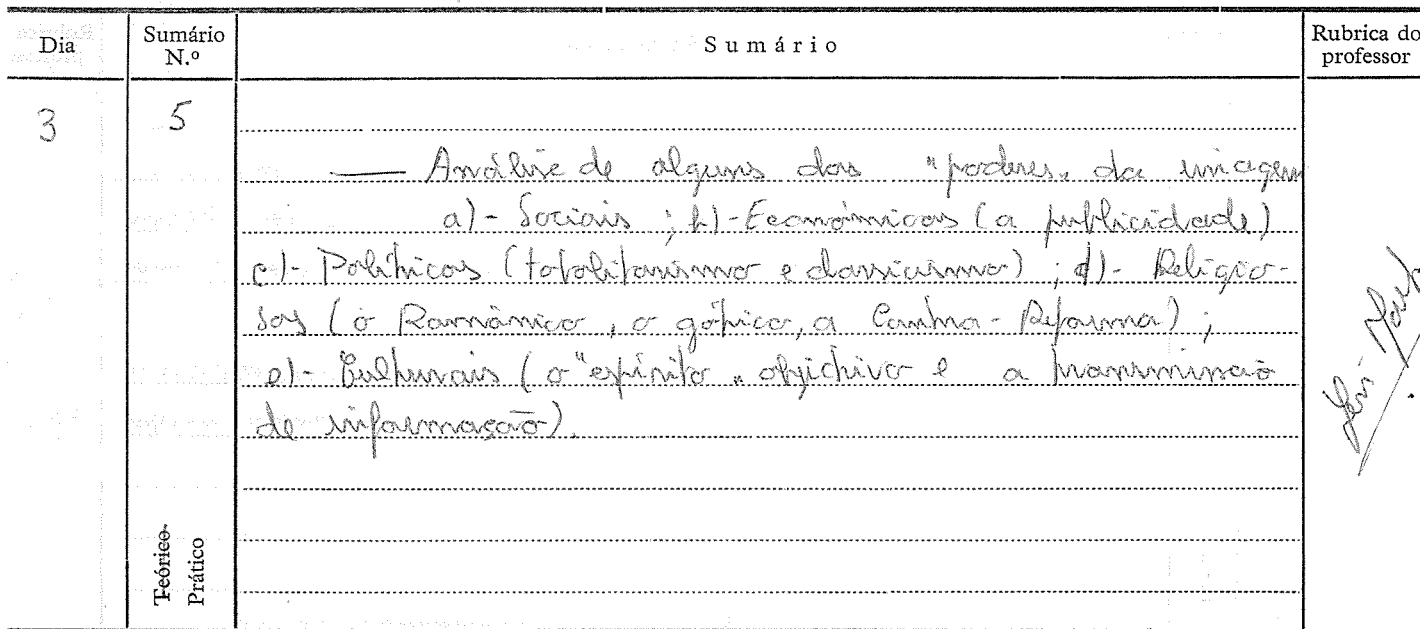 Dia
Sumário N.º
Sumário
Rubrica do professor
3
5
— Análise de alguns dos "poderes" da imagem
a)- Sociais ; b)- Económicos (a publicidade)
c)- Políticos (totalitarismo e classicismo) ; d)- Religio-
sos (o Românico, o gótico, a Contra-Reforma) ;
e)- Culturais (o "espírito" objectivo e a transmissão
de informação).
Teórico-
Prático